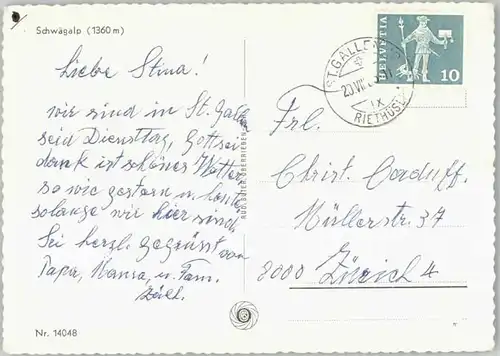 Schwägalp (1360 m)
Liebe Stina!
wir sind in St. Gallen
seid Dienstag, Gottsei
dank ist schönes Wetter
so wie gestern u. heute
solange wir hier sind.
Sei herzl. gegrüsst von
Papa, Mama, u. Fam.
Nr. 14048
RUD. SUTER OBERRIEDEN
HELVETIA
10
ST. GALLEN
20.VII.
IX
RIETHÜSLI
Frl.
Christ. Caduff.
Müllerstr. 37
8000 Zürich 4